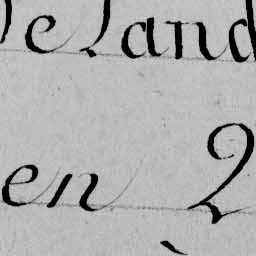 de Land
en 2